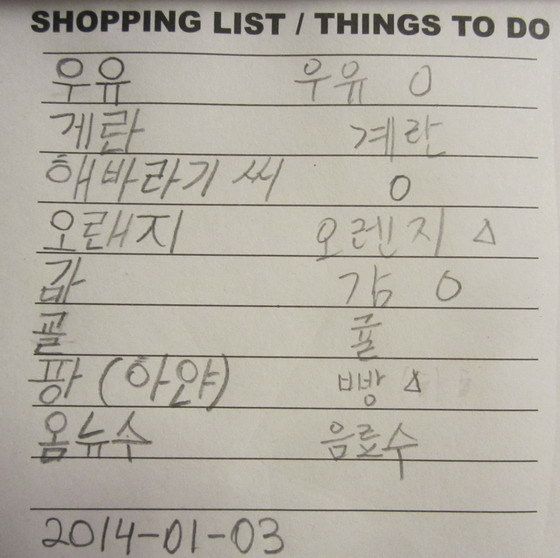 SHOPPING LIST / THINGS TO DO
우유 우유 O
게란 계란
해바라기 씨 O
오랮지 오렌지 △
감 감 O
귤
팡 (하얀) 빵 △
옴뉴수 음료수
2014-01-03